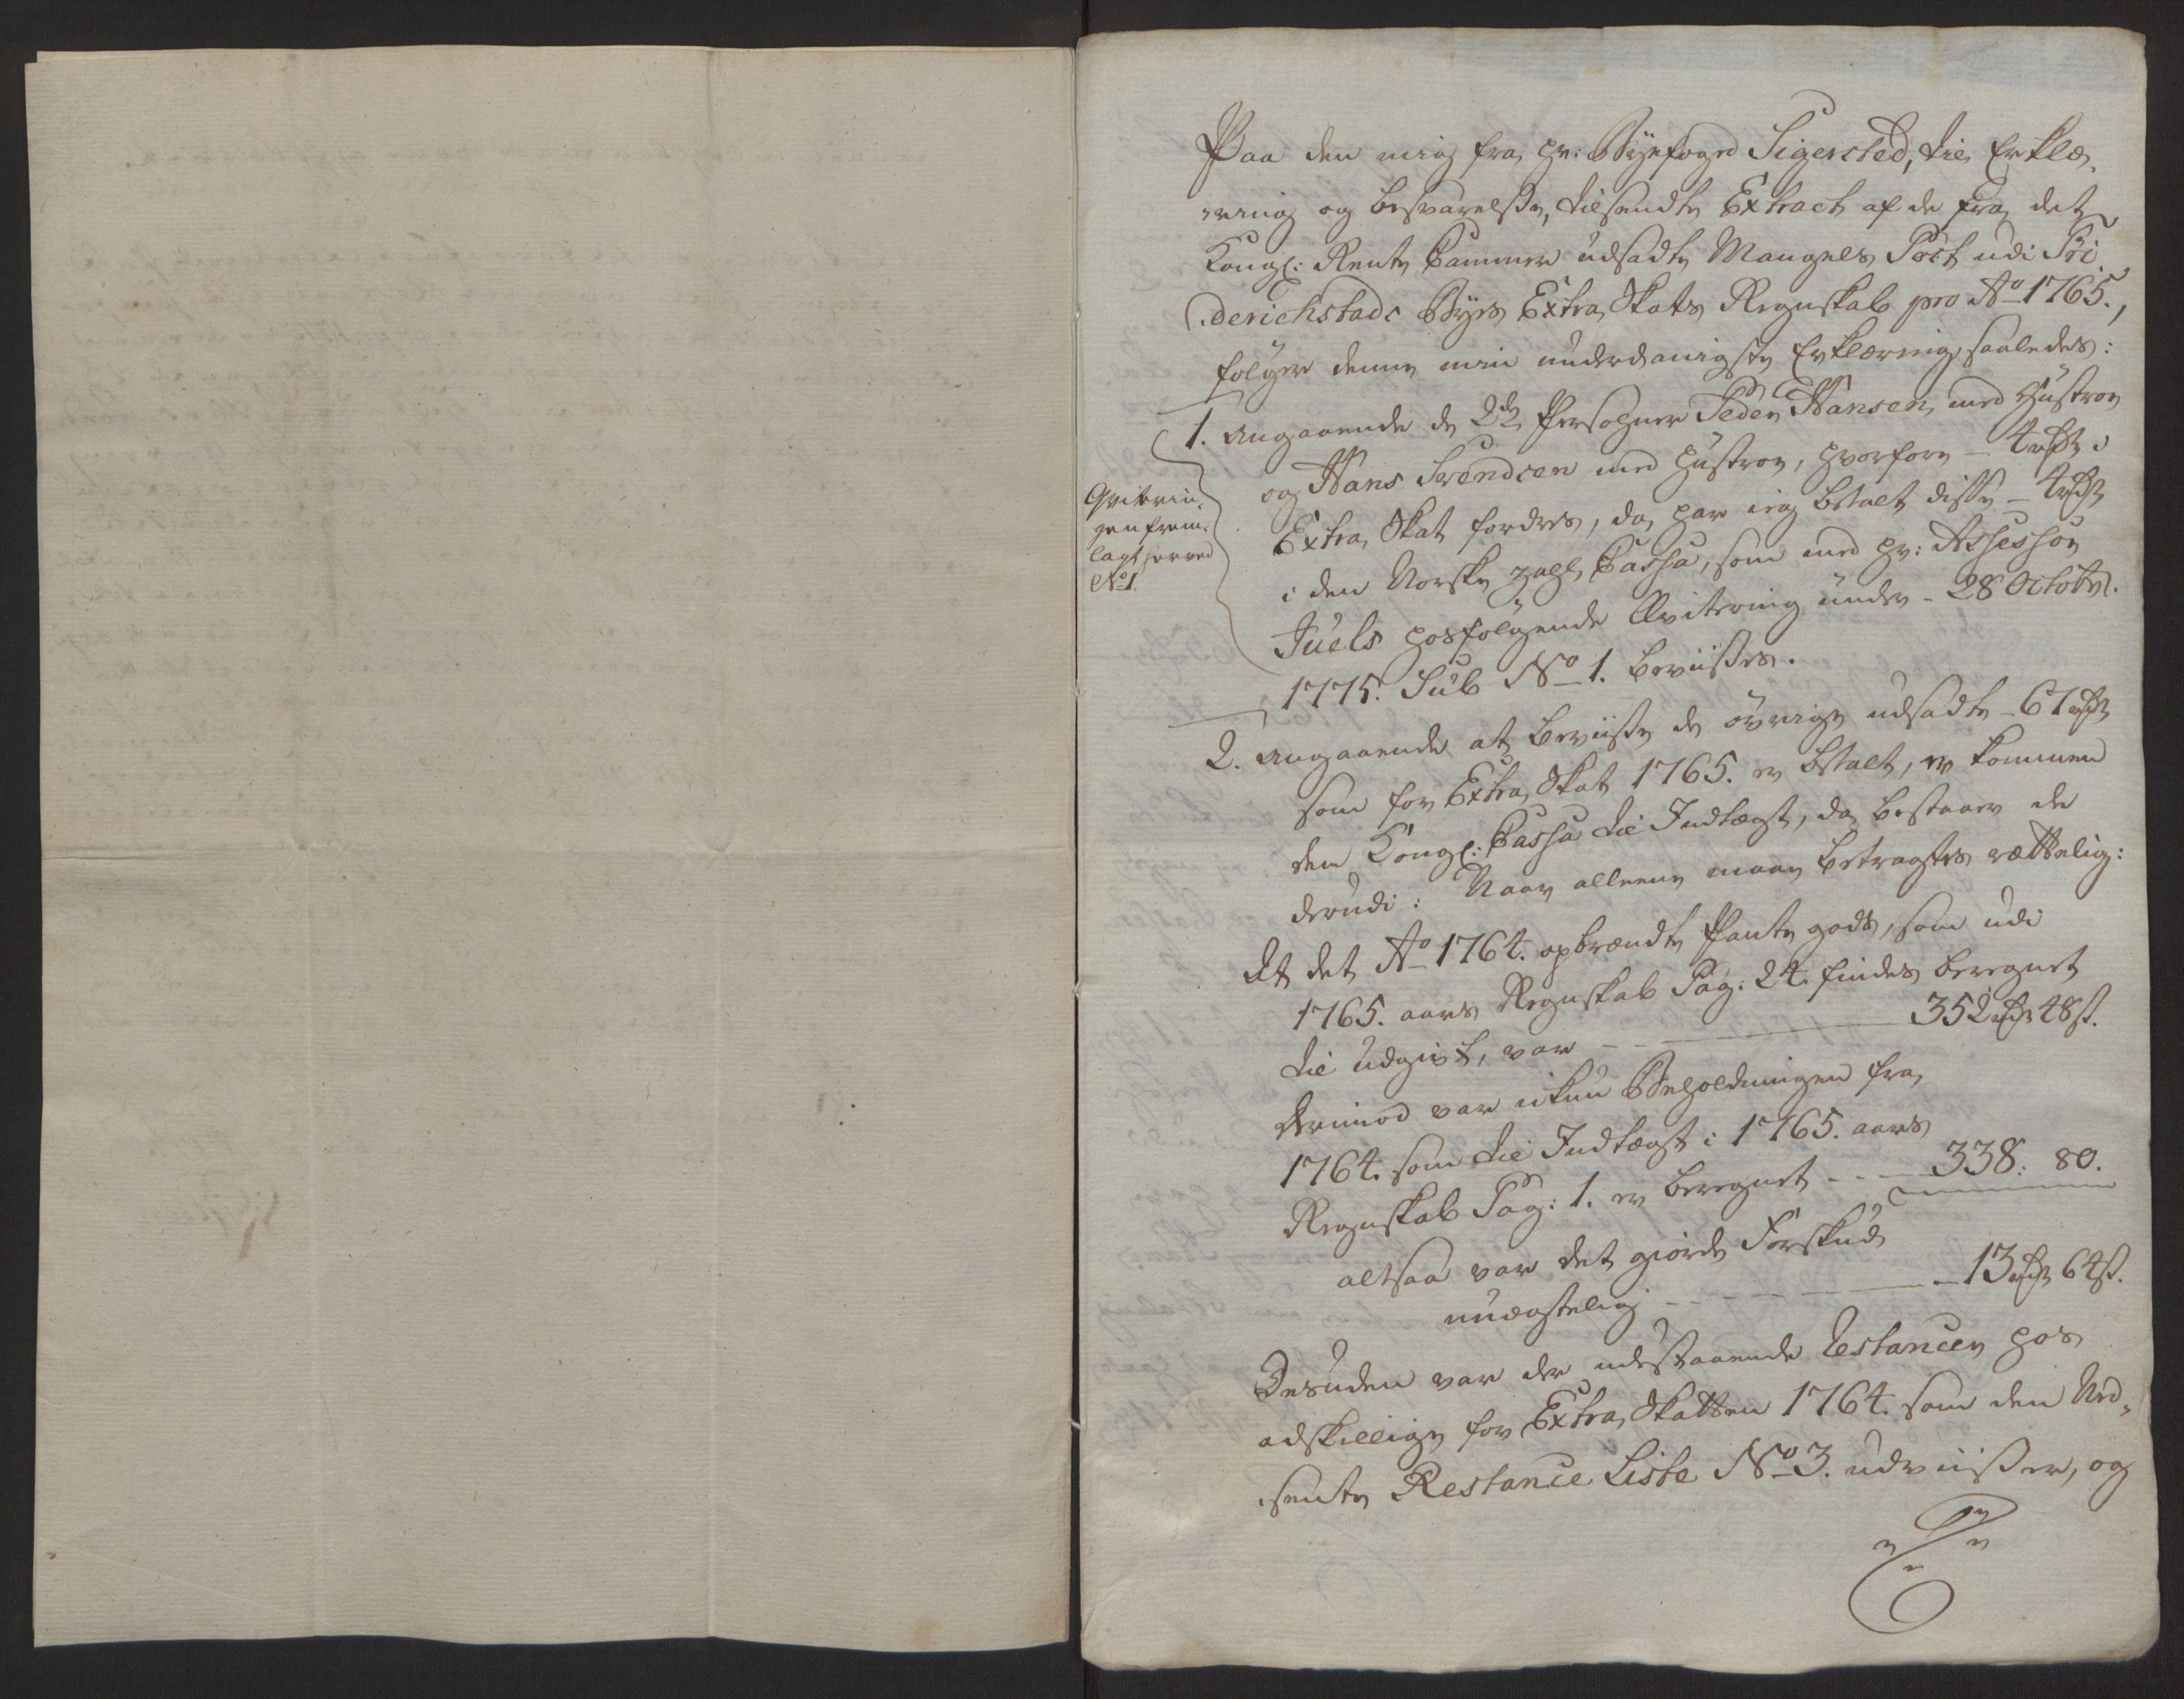 Paa den mig fra Hr: Byefoged Sigersted, til Erklæ-
ring og besvarelse, tilsendte Extract af de fra det
Kongl: Rente Cammer udsadte Mangels Post udi Fri-
derichstads Byes Extra Skats Regnskab pro Ao 1765.,
følger denne min underdanigste Erklæring saaledes:
1. angaaende de 2de Persohner Peder Hansen med Hustrue
og Hans Svendsen med Hustrue, hvorfore - 4 rdr i
Extra Skat fordres, da har ieg betalt disse - 4 rdr
i den Norske Zahl Cassa, som med Hr: Assessor
Juels hosfølgende Qvitering under - 28 Octobr.
1775. Sub No 1. beviises.
Qviterin-
gen frem-
lagt herved
No 1.
2. angaaende at beviise de øvrige udsadte - 61 rdr
som for Extra Skat 1765. er betalt, er kommen
den Kongl: Cassa til Indtægt, da bestaaer de
derudi: Naar alleene maae betragtes rættelig:
At det Ao 1764. opbrændte Pante gods, som udi
1765. aars Regnskab Pag: 24. findes beregnet
til udgivt, var - - - 352 rdr 48 s.
derimod var ikun Beholdningen fra
1764. som til Indtægt i 1765. aars
Regnskab Pag: 1. er beregnet - - - 338: 80.
altsaa var det giorde Forskud
- - - 13 rdr 64 s.
Desuden var der udestaaende Restancer hos
adskillige for Extra Skatten 1764. som den
Restance Liste No 3. udviiser, og